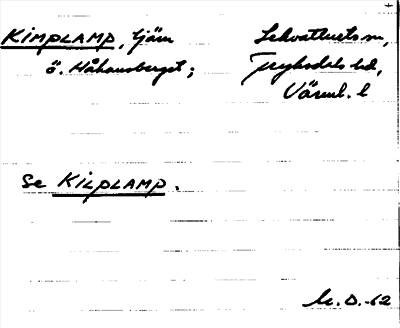 KIMPLAMP, tjärn Lekvattnets sn,
ö. Håkansberget; Fryksdals hd,
Värml. l
Se KILPLAMP.
M.O.-62